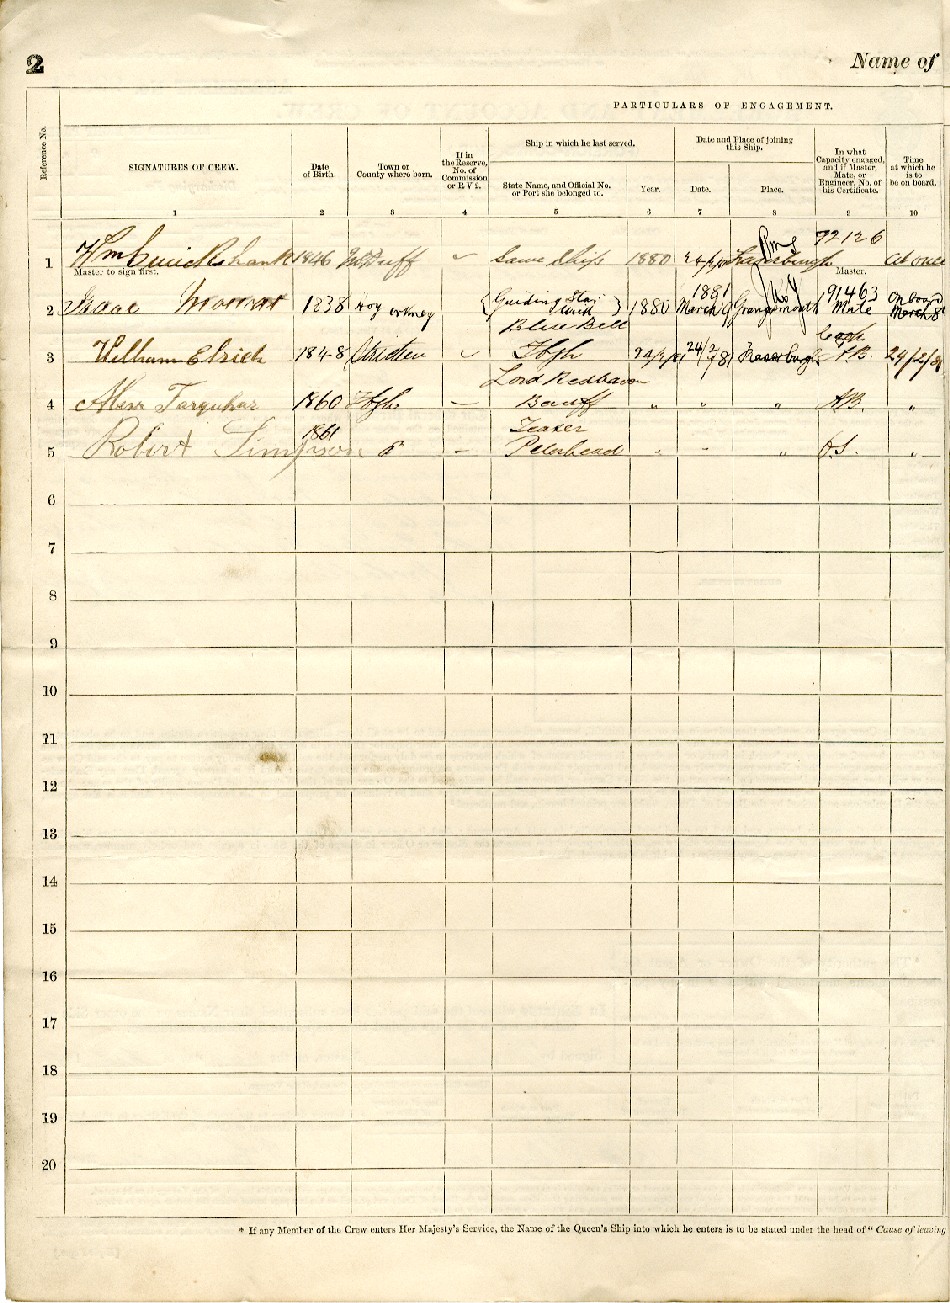 2
Name of
PARTICULARS OF ENGAGEMENT.
Reference No.
SIGNATURES OF CREW.
Date of Birth.
Town or County where born.
If in the Reserve, No. of Commission or R V 2.
Ship in which he last served.
State Name, and Official No. or Port she belonged to.
Year.
Date and Place of joining this Ship.
Date.
Place.
In what Capacity engaged, and if Master, Mate, or Engineer, No. of his Certificate.
Time at which he is to be on board.
1 2 3 4 5 6 7 8 9 10
92126
1 Wm Cruickshank 1846 Same Ship 1880 Fraserburgh Master. At once
Master to sign first.
1881 91463 On board
2 Isaac 1838 Hoy Orkney Guiding Star 1880 March Grangemouth Mate March 8
Blue Bell Cook
3 William Elrick 1848 Fbgh Fraserburgh A.B. 24/2/81
Lord
4 Farquhar 1860 Fbgh — Banff " " " A.B. "
1861 Teazer
5 Robert Simpson — Peterhead " " O.S. "
6
7
8
9
10
11
12
13
14
15
16
17
18
19
20
* If any Member of the Crew enters Her Majesty's Service, the Name of the Queen's Ship into which he enters is to be stated under the head of " Cause of leaving